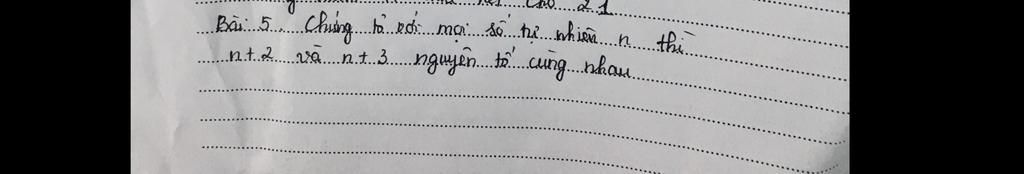 cho 21
Bài 5. Chứng tỏ với mọi số tự nhiên n thì
n+2 và n+3 nguyên tố cùng nhau